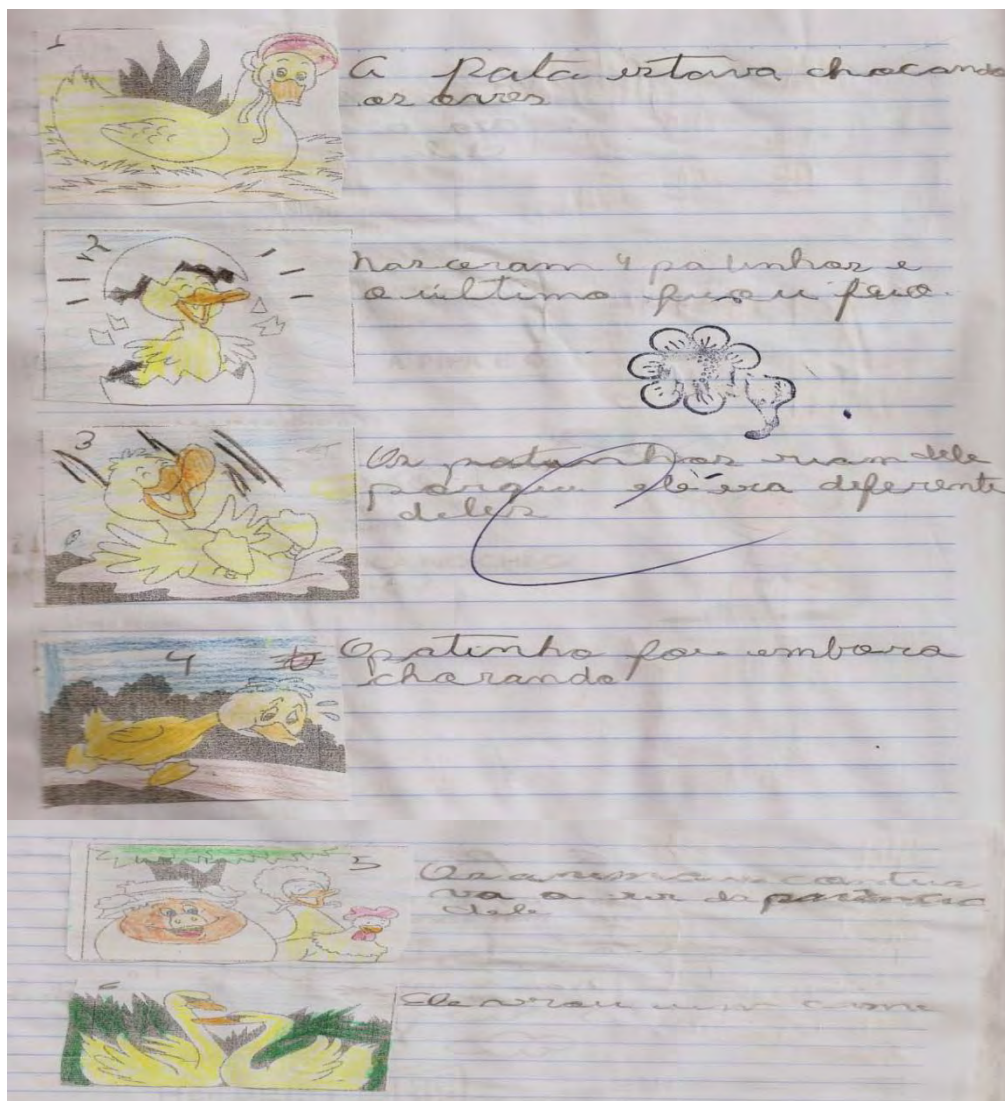 1
A Pata estava chocando
os ovos
2
Nasceram 4 patinhos e
o último ficou feio
3
Os patinhos riam dele
porque ele era diferente
deles
4
O patinho foi embora
chorando
5
Os animais
va a rir do patinho
dele
6
Ele virou um cisne